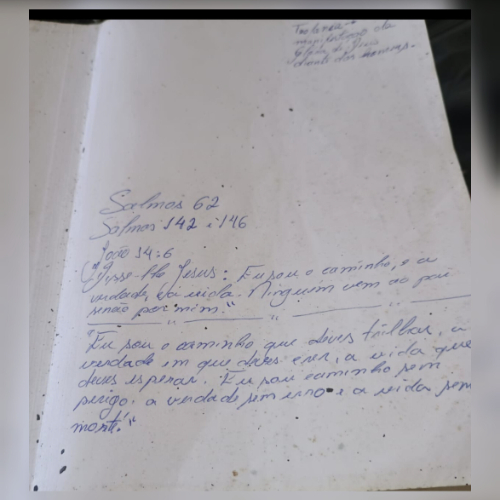 da
de Jesus
diante dos homens.
Salmos 62
Salmos 142 i 146
João 14:6
"Disse-lhe Jesus: Eu sou o caminho, e a
verdade, e a vida. Ninguém vem ao pai
senão por mim."
"Eu sou o caminho que deves trilhar, a
verdade em que deves crer, a vida que
deves esperar. Eu sou caminho sem
perigo, a verdade sem erro e a vida sem
morte."